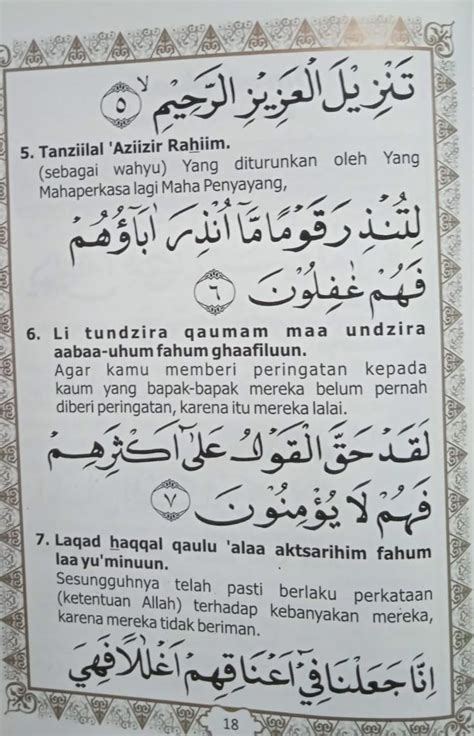 تَنْزِيْلَ الْعَزِيْزِ الرَّحِيْمِۙ ٥
5. Tanziilal 'Aziizir Rahiim.
(sebagai wahyu) Yang diturunkan oleh Yang
Mahaperkasa lagi Maha Penyayang,
لِتُنْذِرَ قَوْمًا مَّآ اُنْذِرَ اٰبَاۤؤُهُمْ
فَهُمْ غٰفِلُوْنَ ٦
6. Li tundzira qaumam maa undzira
aabaa-uhum fahum ghaafiluun.
Agar kamu memberi peringatan kepada
kaum yang bapak-bapak mereka belum pernah
diberi peringatan, karena itu mereka lalai.
لَقَدْ حَقَّ الْقَوْلُ عَلٰٓى اَكْثَرِهِمْ
فَهُمْ لَا يُؤْمِنُوْنَ ٧
7. Laqad haqqal qaulu 'alaa aktsarihim fahum
laa yu'minuun.
Sesungguhnya telah pasti berlaku perkataan
(ketentuan Allah) terhadap kebanyakan mereka,
karena mereka tidak beriman.
اِنَّا جَعَلْنَا فِيْٓ اَعْنَاقِهِمْ اَغْلٰلًا فَهِيَ
18